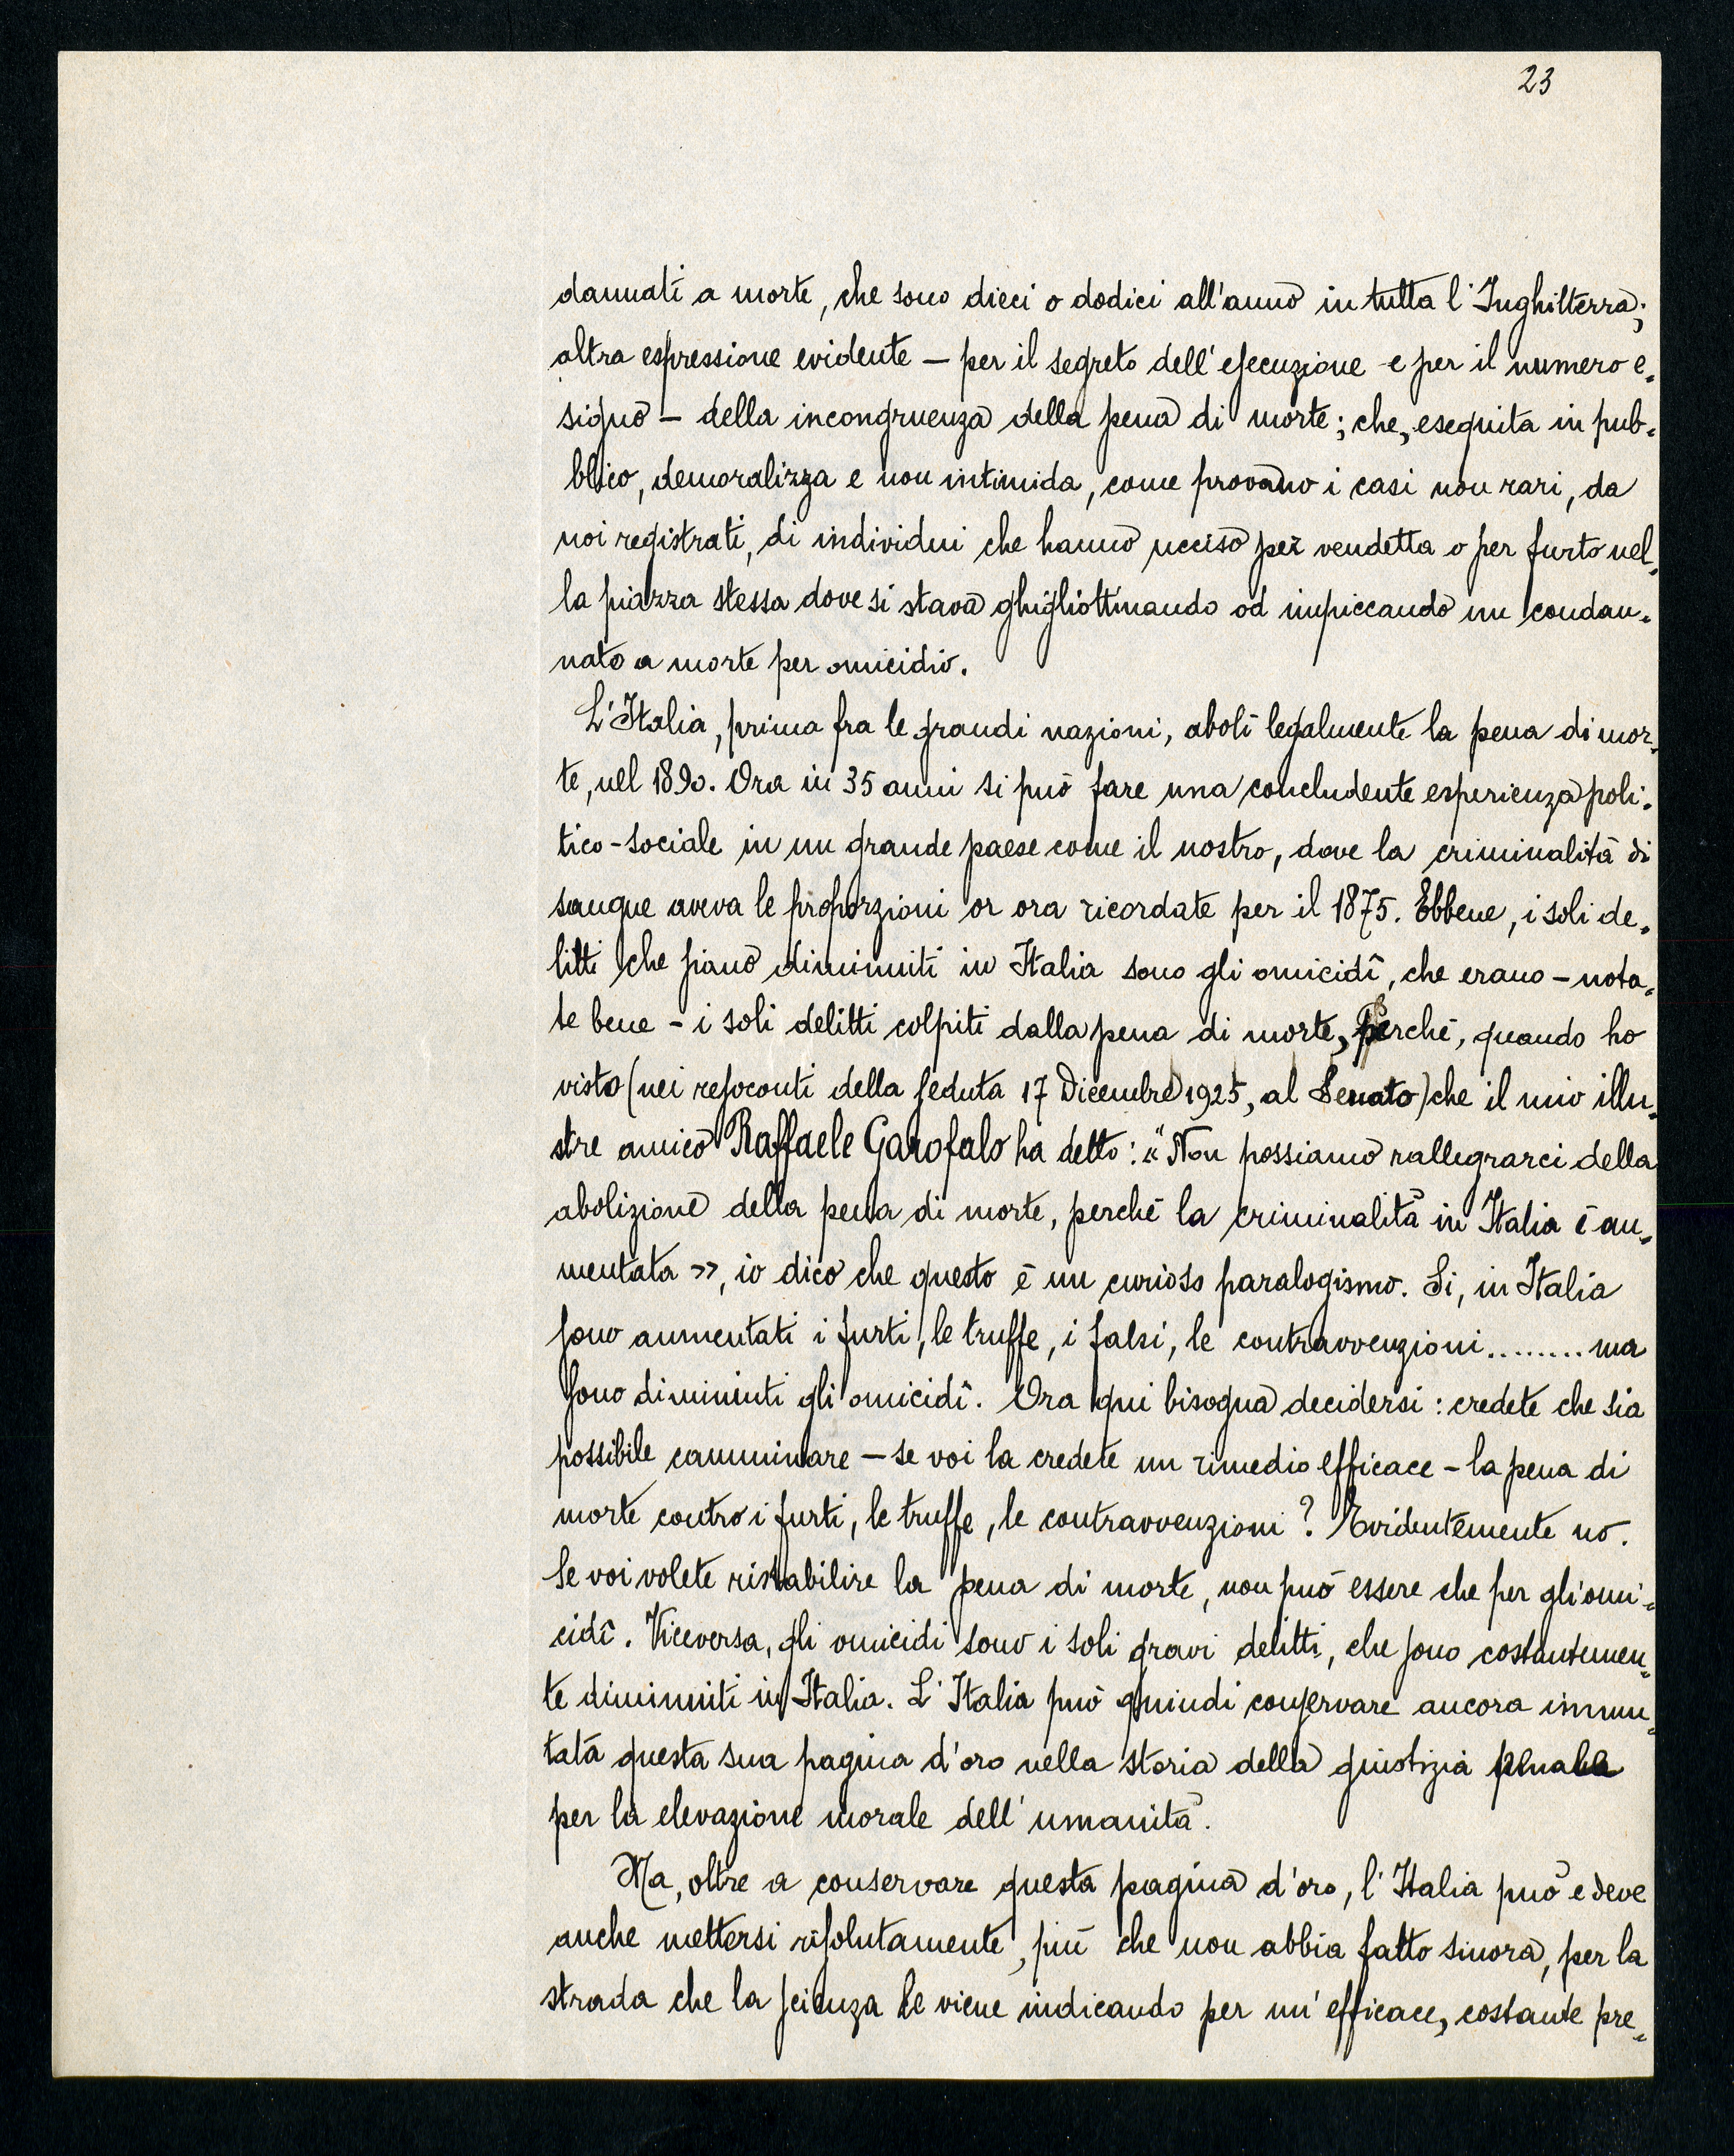 23
dannati a morte, che sono dieci o dodici all'anno in tutta l'Inghilterra;
altra espressione evidente — per il segreto dell'esecuzione e per il numero e-
siguo — della incongruenza della pena di morte; che, eseguita in pub-
blico, demoralizza e non intimida, come provano i casi non rari, da
noi registrati, di individui che hanno ucciso per vendetta o per furto nel-
la piazza stessa dove si stava ghigliottinando od impiccando un condan-
nato a morte per omicidio.
L'Italia, prima fra le grandi nazioni, abolì legalmente la pena di mor-
te, nel 1890. Ora in 35 anni si può fare una concludente esperienza poli-
tico-sociale in un grande paese come il nostro, dove la criminalità di
sangue aveva le proporzioni or ora ricordate per il 1875. Ebbene, i soli de-
litti che siano diminuiti in Italia sono gli omicidî, che erano — nota-
te bene — i soli delitti colpiti dalla pena di morte, perchè, quando ho
visto (nei resoconti della seduta 17 Dicembre 1925, al Senato) che il mio illu-
stre amico Raffaele Garofalo ha detto: « Non possiamo rallegrarci della
abolizione della pena di morte, perchè la criminalità in Italia è au-
mentata », io dico che questo è un curioso paralogismo. Si, in Italia
sono aumentati i furti, le truffe, i falsi, le contravvenzioni........ ma
sono diminuiti gli omicidî. Ora qui bisogna decidersi: credete che sia
possibile camminare — se voi la credete un rimedio efficace — la pena di
morte contro i furti, le truffe, le contravvenzioni? Evidentemente no.
Se voi volete ristabilire la pena di morte, non può essere che per gli omi-
cidî. Viceversa, gli omicidi sono i soli gravi delitti, che sono costantemen-
te diminuiti in Italia. L'Italia può quindi conservare ancora immu-
tata questa sua pagina d'oro nella storia della giustizia penale
per la elevazione morale dell'umanità.
Ma, oltre a conservare questa pagina d'oro, l'Italia può e deve
anche mettersi risolutamente, più che non abbia fatto sinora, per la
strada che la scienza le viene indicando per un'efficace, costante pre-